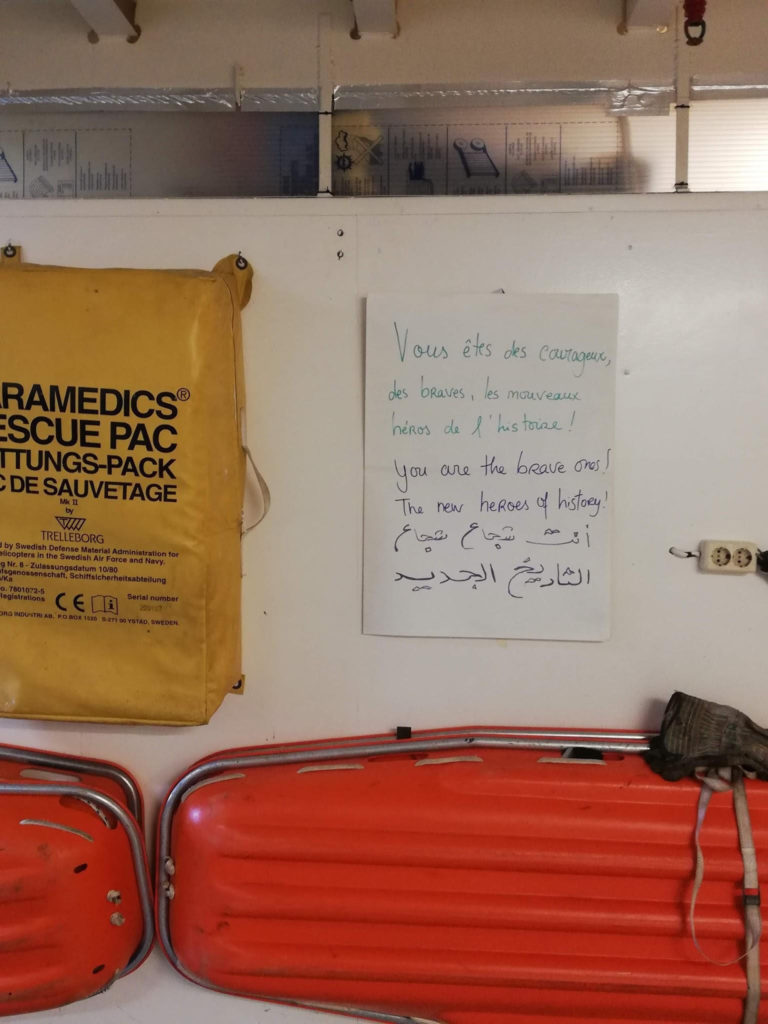 ARAMEDICS®
ESCUE PAC
TTUNGS-PACK
C DE SAUVETAGE
Mk II
by
TRELLEBORG
d by Swedish Defense Material Administration for
elicopters in the Swedish Air Force and Navy.
g Nr. 6 - Zulassungsdatum 10/80
fsgenossenschaft, Schiffsicherheitsabteilung
/Ka
o. 7801072-5
Registrations
CE
Serial number
ORG INDUSTRI AB, P.O BOX 1520 S-271 00 YSTAD, SWEDEN.
Vous êtes des courageux,
des braves, les nouveaux
héros de l'histoire!
You are the brave ones!
The new heroes of history!
أنت شجاع شجاع
التاريخ الجديد